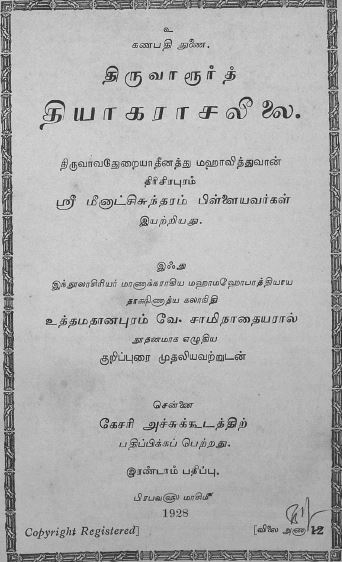 உ
கணபதி துணை.
திருவாரூர்த்
தியாகராசலீலை.
திருவாவடுதுறையாதீனத்து மஹாவித்துவான்
திரிசிரபுரம்
ஸ்ரீ மீனாட்சிசுந்தரம் பிள்ளையவர்கள்
இயற்றியது.
இஃது
இந்நூலாசிரியர் மாணாக்கராகிய மஹாமஹோபாத்தியாய
தாக்ஷிணாத்ய கலாநிதி
உத்தமதானபுரம் வே. சாமிநாதையரால்
நூதனமாக எழுதிய
குறிப்புரை முதலியவற்றுடன்
சென்னை
கேசரி அச்சுக்கூடத்திற்
பதிப்பிக்கப் பெற்றது.
இரண்டாம் பதிப்பு.
பிரபவ௵ மாசி௴
1928
Copyright Registered] [விலை அணா 12